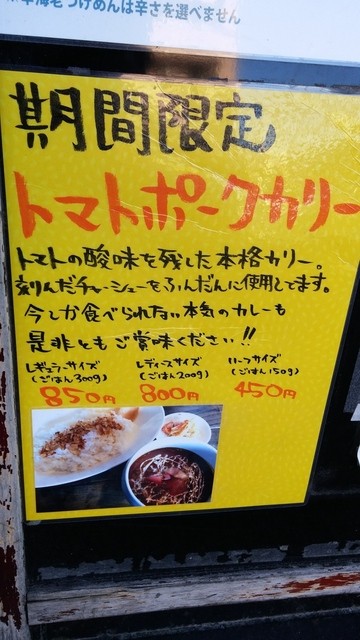 海老つけめんは辛さを選べません
期間限定
トマトポークカリー
トマトの酸味を残した本格カリー。
刻んだチャーシューをふんだんに使用してます。
今しか食べられない本気のカレーも
是非ともご賞味ください!!
レギュラーサイズ レディースサイズ ハーフサイズ
(ごはん300g) (ごはん200g) (ごはん150g)
850円 800円 450円